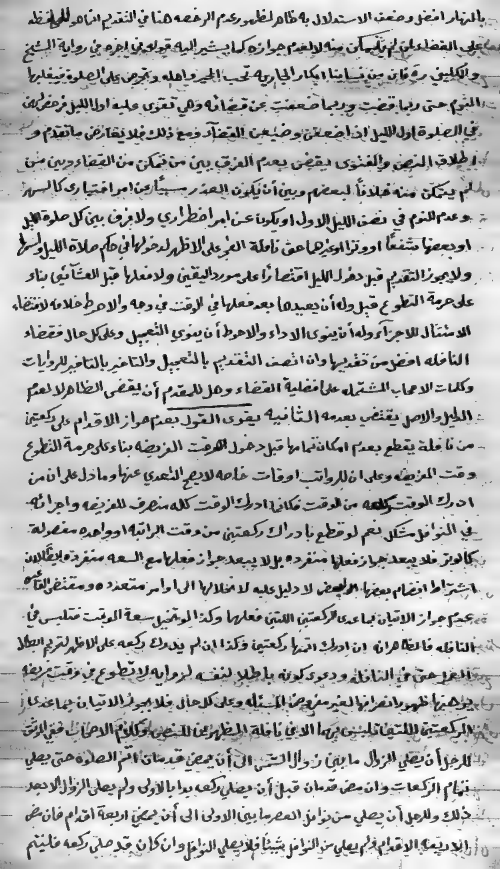 بالنهار افضل وضعف الاستدلال به ظاهر لظهور عدم الرخصة هنا في التقديم انما هو
على القضاء لمن لم يتمكن منه لا لعدم جوازه كما يشير اليه قوله في اخره في رواية الشيخ
والكليني ره فان من نسائنا ابكار الجارية تحب الخير واهله وتحرص على الصلوة فيغلبها
النوم حتى ربما قضت وربما ضعفت عن قضائه وهي تقوى عليه اول الليل فرخص لهن
في الصلوة اول الليل اذا ضعفن وضيعن القضاء ومع ذلك فلا يعارض ما تقدم و
اطلاق النص والفتوى يقضي بعدم الفرق بين من يتمكن من القضاء وبين من
لم يتمكن منه خلافا لبعضهم وبين أن يكون العذر مسببا عن امر اختياري كالسهر
وعدم النوم في نصف الليل الاول او يكون عن امر اضطراري ولا فرق بين كل صلوة الليل
او بعضها شفعا او وترا او غيرهما حتى نافلة الفجر على الاظهر لدخولها في حكم صلاة الليل
ولا يجوز التقديم قبل دخول الليل اقتصارا على مورد اليقين ولا فعلها قبل العشائين بناء
على حرمة التطوع قبل وله أن يعيدها بعد فعلها في الوقت في وجه والاحوط خلافه لاقتضاء
الامتثال للاجزاء وله أن ينوي الاداء والاحوط أن ينوي التعجيل وعلى كل حال فقضاء
النافلة افضل من تقديمها وان اتصف التقديم بالتعجيل والتاخير بالتاخير للروايات
وكلمات الاصحاب المشتملة على افضلية القضاء وهل للمقدم أن يقضي الظاهر لا لعدم
الدليل والاصل يقتضي بعدمه الثانية يقوى القول بعدم جواز الاقدام على ركعتي
من نافلة يقطع بعدم امكان تمامها قبل دخول وقت الفريضة بناء على حرمة التطوع
وقت الفريضة وعلى ان للرواتب اوقات خاصة لا يصح التعدي عنها وما دل على ان من
ادرك الوقت ركعة من الوقت فكانما ادرك الوقت كله منصرف للفريضة واجرائه
في النوافل مشكل نعم لو قطع بادراك ركعتين من وقت الراتبة او واحدة مفصولة
كالوتر فلا يبعد جواز فعلها منفردة بل لا يبعد جواز فعلها مع السعة منفردة
اشتراط انضمام بعضها لبعض لا دليل عليه لانحلالها الى اوامر متعددة ومقتضى
عدم جواز الاتيان بما عدى الركعتين اللتين فعلها وكذا لو تخيل سعة الوقت فتلبس في
النافلة فالظاهر انه ان ادرك اتمها ركعتين وكذا ان لم يدرك ركعة على الاظهر
العمل حتى في النافلة ودعوى كونه باطلا لنفسه لرواية لا تطوع في وقت فريضة
يوهنها ظهور انصرافها لغير مفروض المسئلة وعلى كل حال فلا يجوز الاتيان بما عدى
الركعتين اللتين تلبس بهما الا في نافلة الظهرين للنص وكلام الاصحاب ففي الموثق
للرجل أن يصلي الزوال ما بين زوال الشمس الى أن يمضي قدمان اتم الصلوة حتى يصلي
تمام الركعات وان مضى قدمان قبل أن يصلي ركعة بدأ بالاولى ولم يصلي الزوال الا بعد
ذلك وللرجل أن يصلي من نوافل العصر ما بين الاولى الى أن يمضي اربعة اقدام فان مضى
الاربعة الاقدام ولم يصلي من النوافل شيئا فلا يصلي النوافل وان كان قد صلى ركعة فليتم